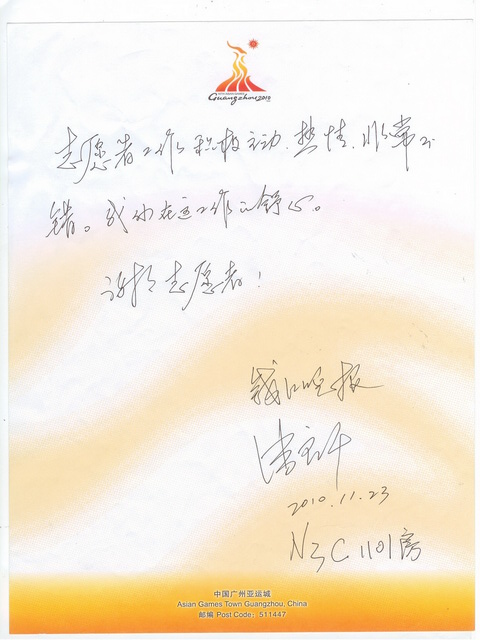 Guangzhou 2010
志愿者工作积极主动、热情、非常不
错。我们在这工作的舒心。
谢谢志愿者！
钱江晚报
2010.11.23
N3C 1101房
中国广州亚运城
Asian Games Town Guangzhou, China
邮编 Post Code：511447